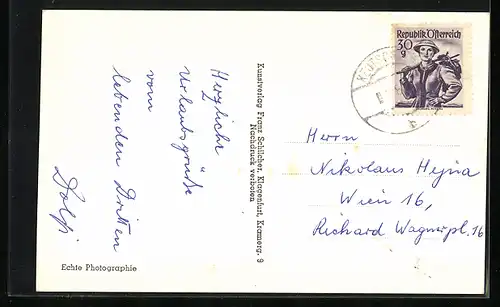 Herzliche
Urlaubsgrüße
vom
lebenden Dritten
Dolfi
Echte Photographie
Kunstverlag Franz Schilcher, Klagenfurt, Kramerg. 9
Nachdruck verboten
Republik Österreich
30
g
b
Herrn
Nikolaus Hejna
Wien 16,
Richard Wagnerpl. 16